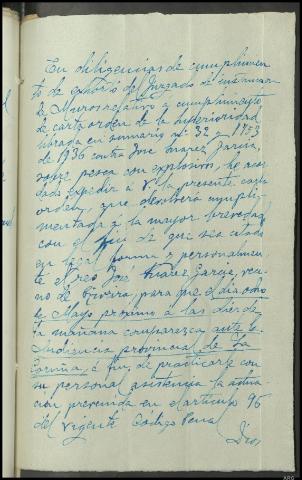 En diligencias de cumplimien
to de exhorto del Juzgado de instrucción
de Muros relativo a cumplimiento
de carta orden de la Superioridad
librada en sumario nº 32 = 1453
de 1936 contra José Suarez Garcia,
sobre pesca con explosivos, he acor
dado expedir a V. la presente carta
orden, que devolverá cumpli-
mentada á la mayor brevedad
con el fin de que sea citado
en legal forma y personalmen
te el reo José Suarez Garcia, veci
no de Riveira, para que el dia ocho
de Mayo proximo a las diez de
la mañana comparezca ante la
Audiencia provincial de La
Coruña, a fin de practicarse con
su personal asistencia la actua
cion prevenida en el articulo 96
del vigente Código Penal
Dios
ARG